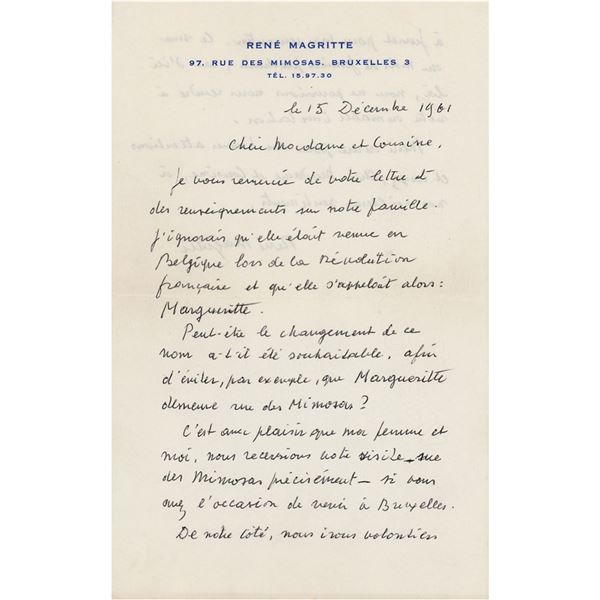 RENÉ MAGRITTE
97, RUE DES MIMOSAS, BRUXELLES 3
TÉL. 15.97.30
le 15 Décembre 1961
Chère Madame et Cousine,
Je vous remercie de votre lettre et
des renseignements sur notre famille.
J'ignorais qu'elle était venue en
Belgique lors de la Révolution
française et qu'elle s'appelait alors:
Margueritte.
Peut-être le changement de ce
nom a-t'il été souhaitable, afin
d'éviter, par exemple, que Margueritte
demeure rue des Mimosas?
C'est avec plaisir que ma femme et
moi, nous recevrions votre visite – rue
des Mimosas précisément – si vous
avez l'occasion de venir à Bruxelles.
De notre côté, nous irons volontiers